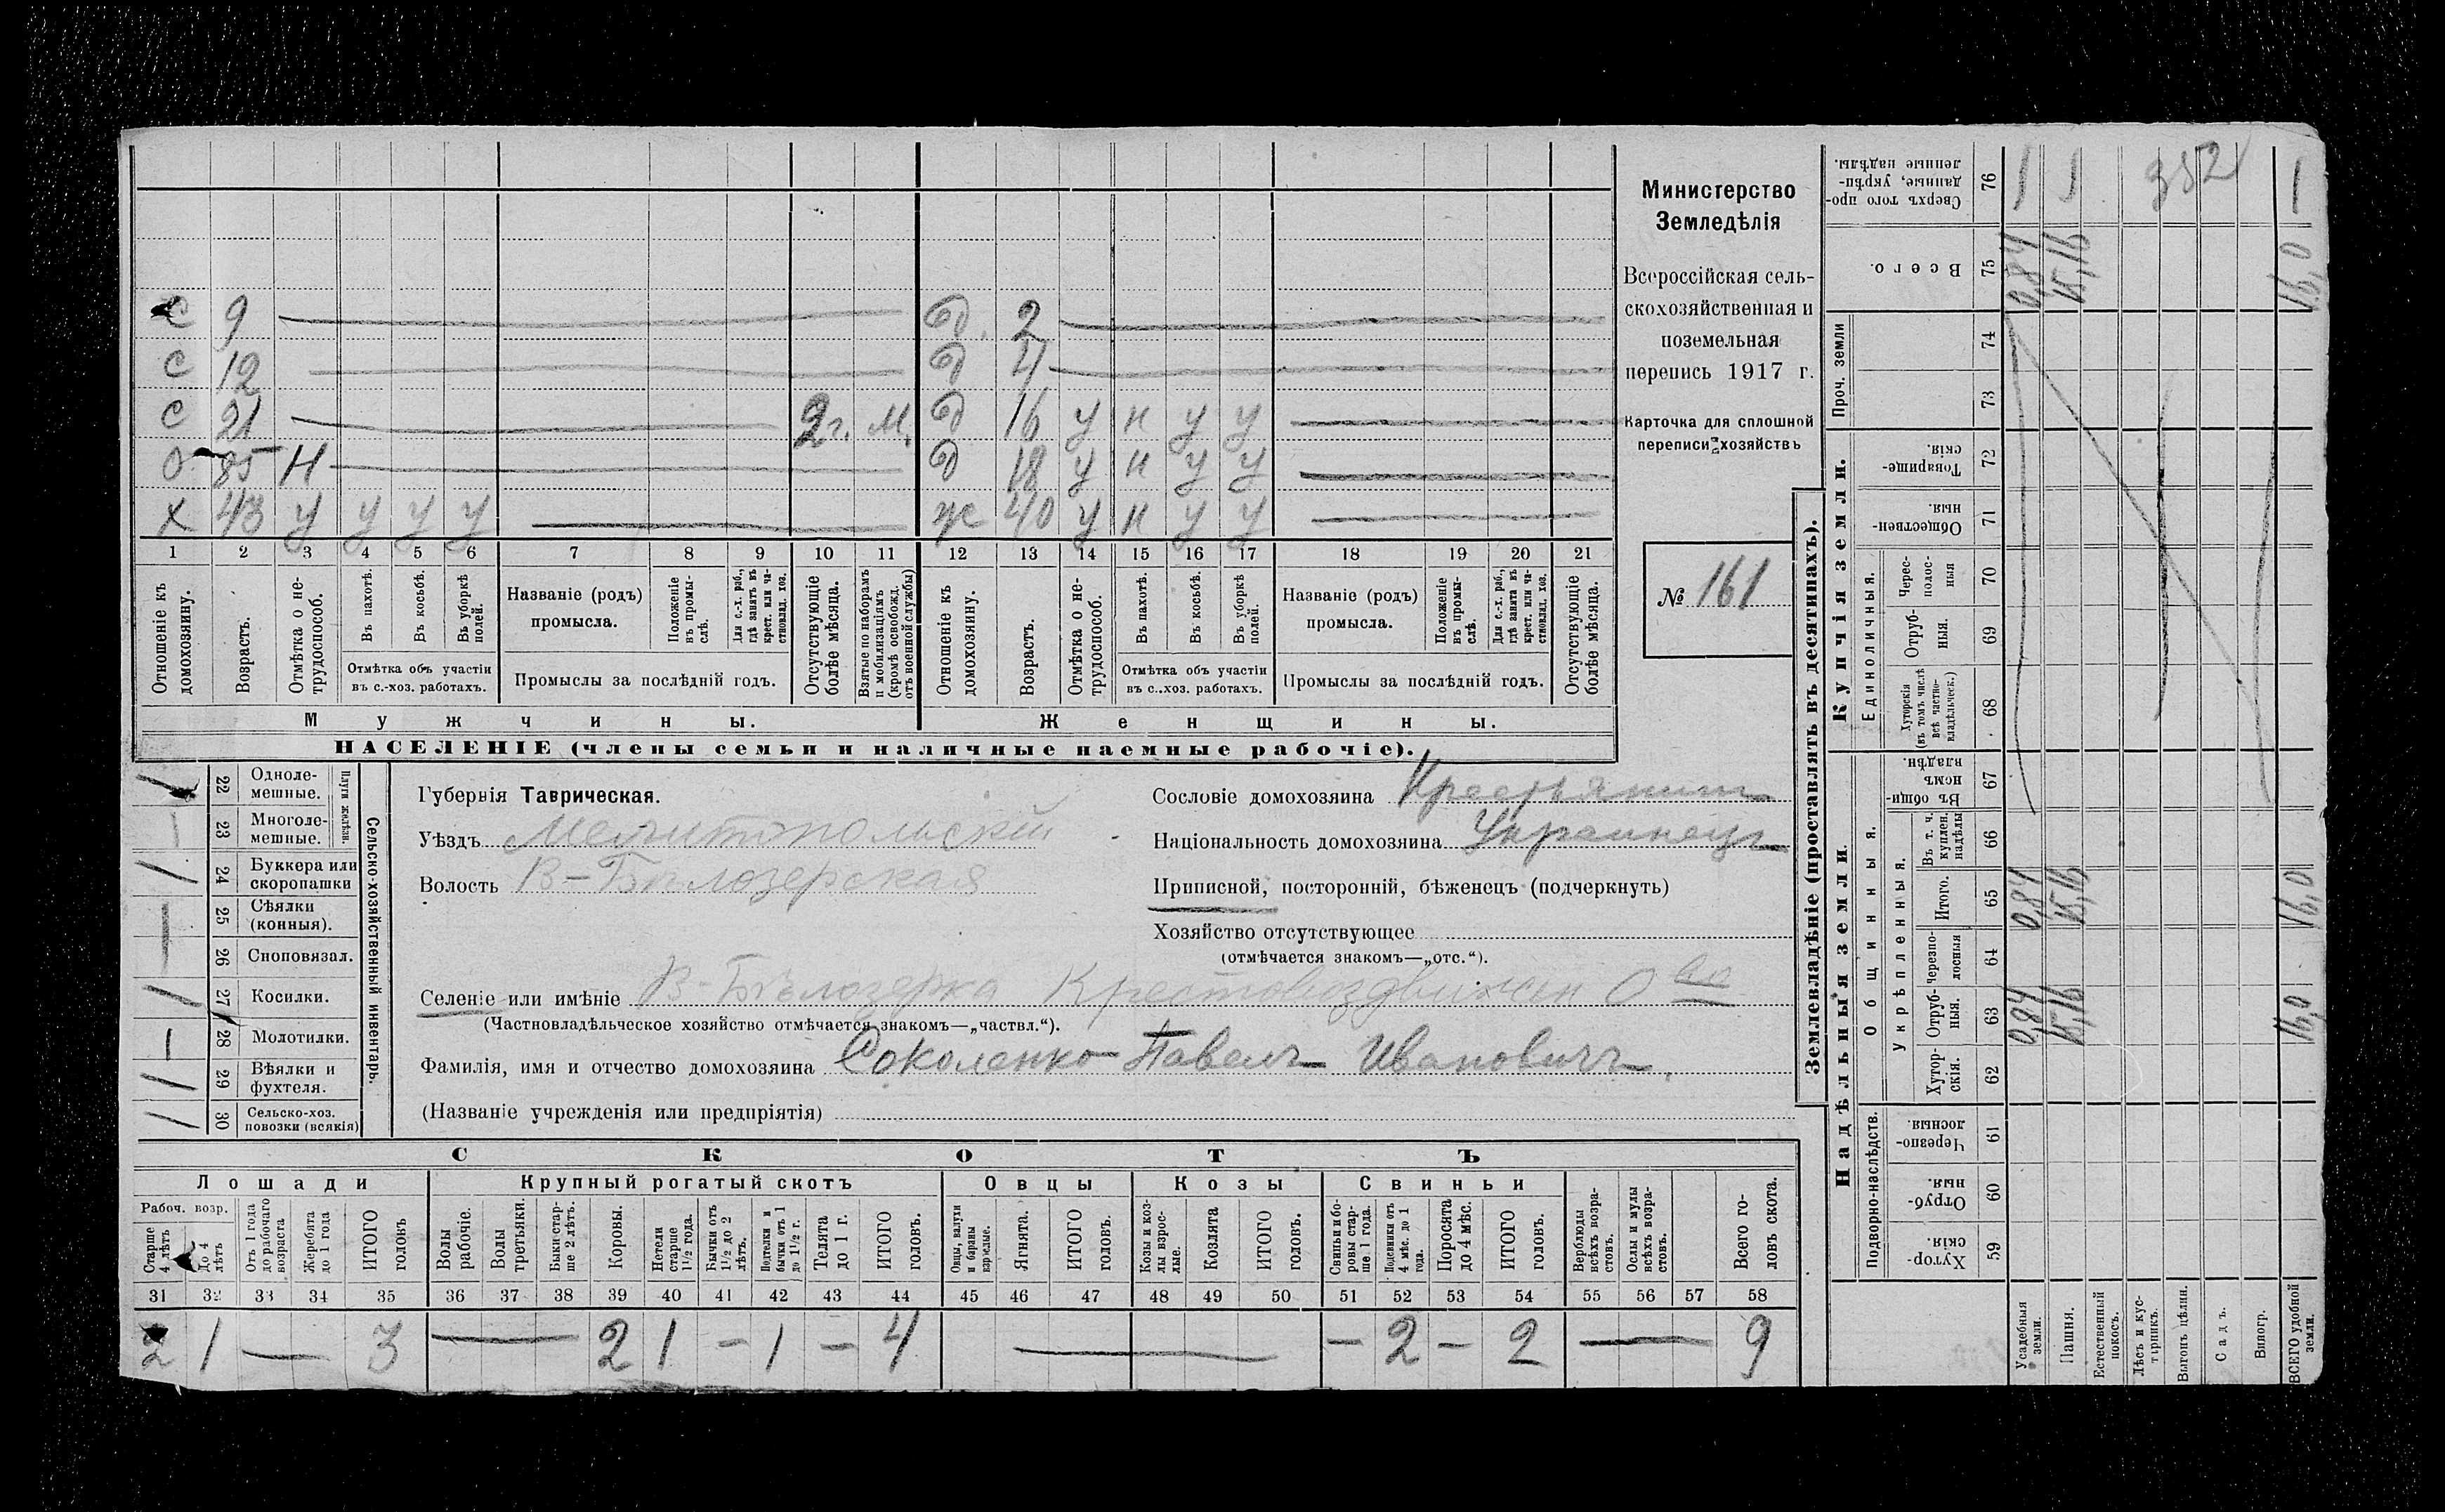 С 9 — Д. 2 —
С 12 — Д 4 —
С 21 — 2 г. М. Д 16 У Н У У —
О 85 Н — Д 18 У Н У У —
Х 43 У У У У — Ж 40 У Н У У —
1 2 3 4 5 6 7 8 9 10 11 12 13 14 15 16 17 18 19 20 21
Отношеніе къ домохозяину.
Возрастъ.
Отмѣтка о нетрудоспособ.
Въ пахотѣ.
Въ косьбѣ.
Въ уборкѣ полей.
Отмѣтка объ участіи
въ с.-хоз. работахъ.
Названіе (родъ)
промысла.
Положеніе въ промыслѣ.
Для с.-х. раб., гдѣ занятъ въ крест. или частновлад. хоз.
Промыслы за послѣдній годъ.
Отсутствующіе болѣе мѣсяца.
Взятые по наборамъ и мобилизаціямъ (кромѣ освобожд. отъ военной службы)
Отношеніе къ домохозяину.
Возрастъ.
Отмѣтка о нетрудоспособ.
Въ пахотѣ.
Въ косьбѣ.
Въ уборкѣ полей.
Отмѣтка объ участіи
въ с..хоз. работахъ.
Названіе (родъ)
промысла.
Положеніе въ промыслѣ.
Для с.-х. раб., гдѣ занята въ крест. или частновлад. хоз.
Промыслы за послѣдній годъ.
Отсутствующіе болѣе мѣсяца.
Мужчины.
Женщины.
НАСЕЛЕНІЕ (члены семьи и наличные наемные рабочіе).
Министерство
Земледѣлія
Всероссійская сель-
скохозяйственная и
поземельная
перепись 1917 г.
Карточка для сплошной
переписи хозяйствъ
№ 161
Сельско-хозяйственный инвентарь.
Плуги желѣзн.
1 22 Одноле-
мешные.
— 23 Многоле-
мешные.
1 24 Буккера или
скоропашки
— 25 Сѣялки
(конныя).
— 26 Сноповязал.
1 27 Косилки.
— 28 Молотилки.
1 29 Вѣялки и
фухтеля.
1 30 Сельско-хоз.
повозки (всякія)
Губернія Таврическая.
Уѣздъ Мелитопольскій
Волость В-Бѣлозерская
Селеніе или имѣніе В-Бѣлозерка Крестовоздвижен О во
(Частновладѣльческое хозяйство отмѣчается знакомъ—„частвл.“).
Фамилія, имя и отчество домохозяина Соколенко Павелъ Ивановичъ.
(Названіе учрежденія или предпріятія)
Сословіе домохозяина Крестьянинъ
Національность домохозяина Украинецъ
Приписной, посторонній, бѣженецъ (подчеркнуть)
Хозяйство отсутствующее
(отмѣчается знакомъ—„отс.“).
СКОТЪ
Лошади
Рабоч. возр.
Старше 4 лѣтъ
До 4 лѣтъ
Отъ 1 года до рабочаго возраста
Жеребята до 1 года
ИТОГО головъ
Крупный рогатый скотъ
Волы рабочіе.
Волы третьяки.
Быки старше 2 лѣтъ.
Коровы.
Нетели старше 1½ года.
Бычки отъ 1½ до 2 лѣтъ.
Подтелки и бычки отъ 1 до 1½ г.
Телята до 1 г.
ИТОГО головъ.
Овцы
Овцы, валухи и бараны взрослые.
Ягнята.
ИТОГО головъ.
Козы
Козы и козлы взрослые.
Козлята
ИТОГО головъ.
Свиньи
Свиньи и боровы старше 1 года.
Подсвинки отъ 4 мѣс. до 1 года.
Поросята до 4 мѣс.
ИТОГО головъ.
Верблюды всѣхъ возрастовъ.
Ослы и мулы всѣхъ возрастовъ.
Всего головъ скота.
31 32 33 34 35 36 37 38 39 40 41 42 43 44 45 46 47 48 49 50 51 52 53 54 55 56 57 58
2 1 — 3 — 2 1 - 1 — 4 — - 2 - 2 — 9
Землевладѣніе (проставлять въ десятинахъ).
Надѣльныя земли.
Купчія земли.
Проч. земли
Подворно-наслѣдств.
Общинныя.
Укрѣпленныя.
Единоличныя.
Сверхъ того проданные, укрѣпленные надѣлы. 76 — — 352 —
Всего. 75 0,84 15,16 16,0
74
73
Товарищескія. 72
Общественныя. 71
Чересполосныя 70
Отрубныя. 69
Хуторскія (въ томъ числѣ всѣ частновладѣльческ.) 68
Въ общинномъ владѣн. 67
Въ т. ч. куплен. надѣлы 66
Итого. 65 0,84 15,16 16,0
Черезполосныя 64
Отрубныя. 63 0,84 15,16 16,0
Хуторскія. 62
Черезполосныя. 61
Отрубныя. 60
Хуторскія. 59
Усадебныя земли.
Пашня.
Естественный покосъ.
Лѣсъ и кустарникъ.
Выгонъ цѣлин.
Садъ.
Виногр.
ВСЕГО удобной земли.